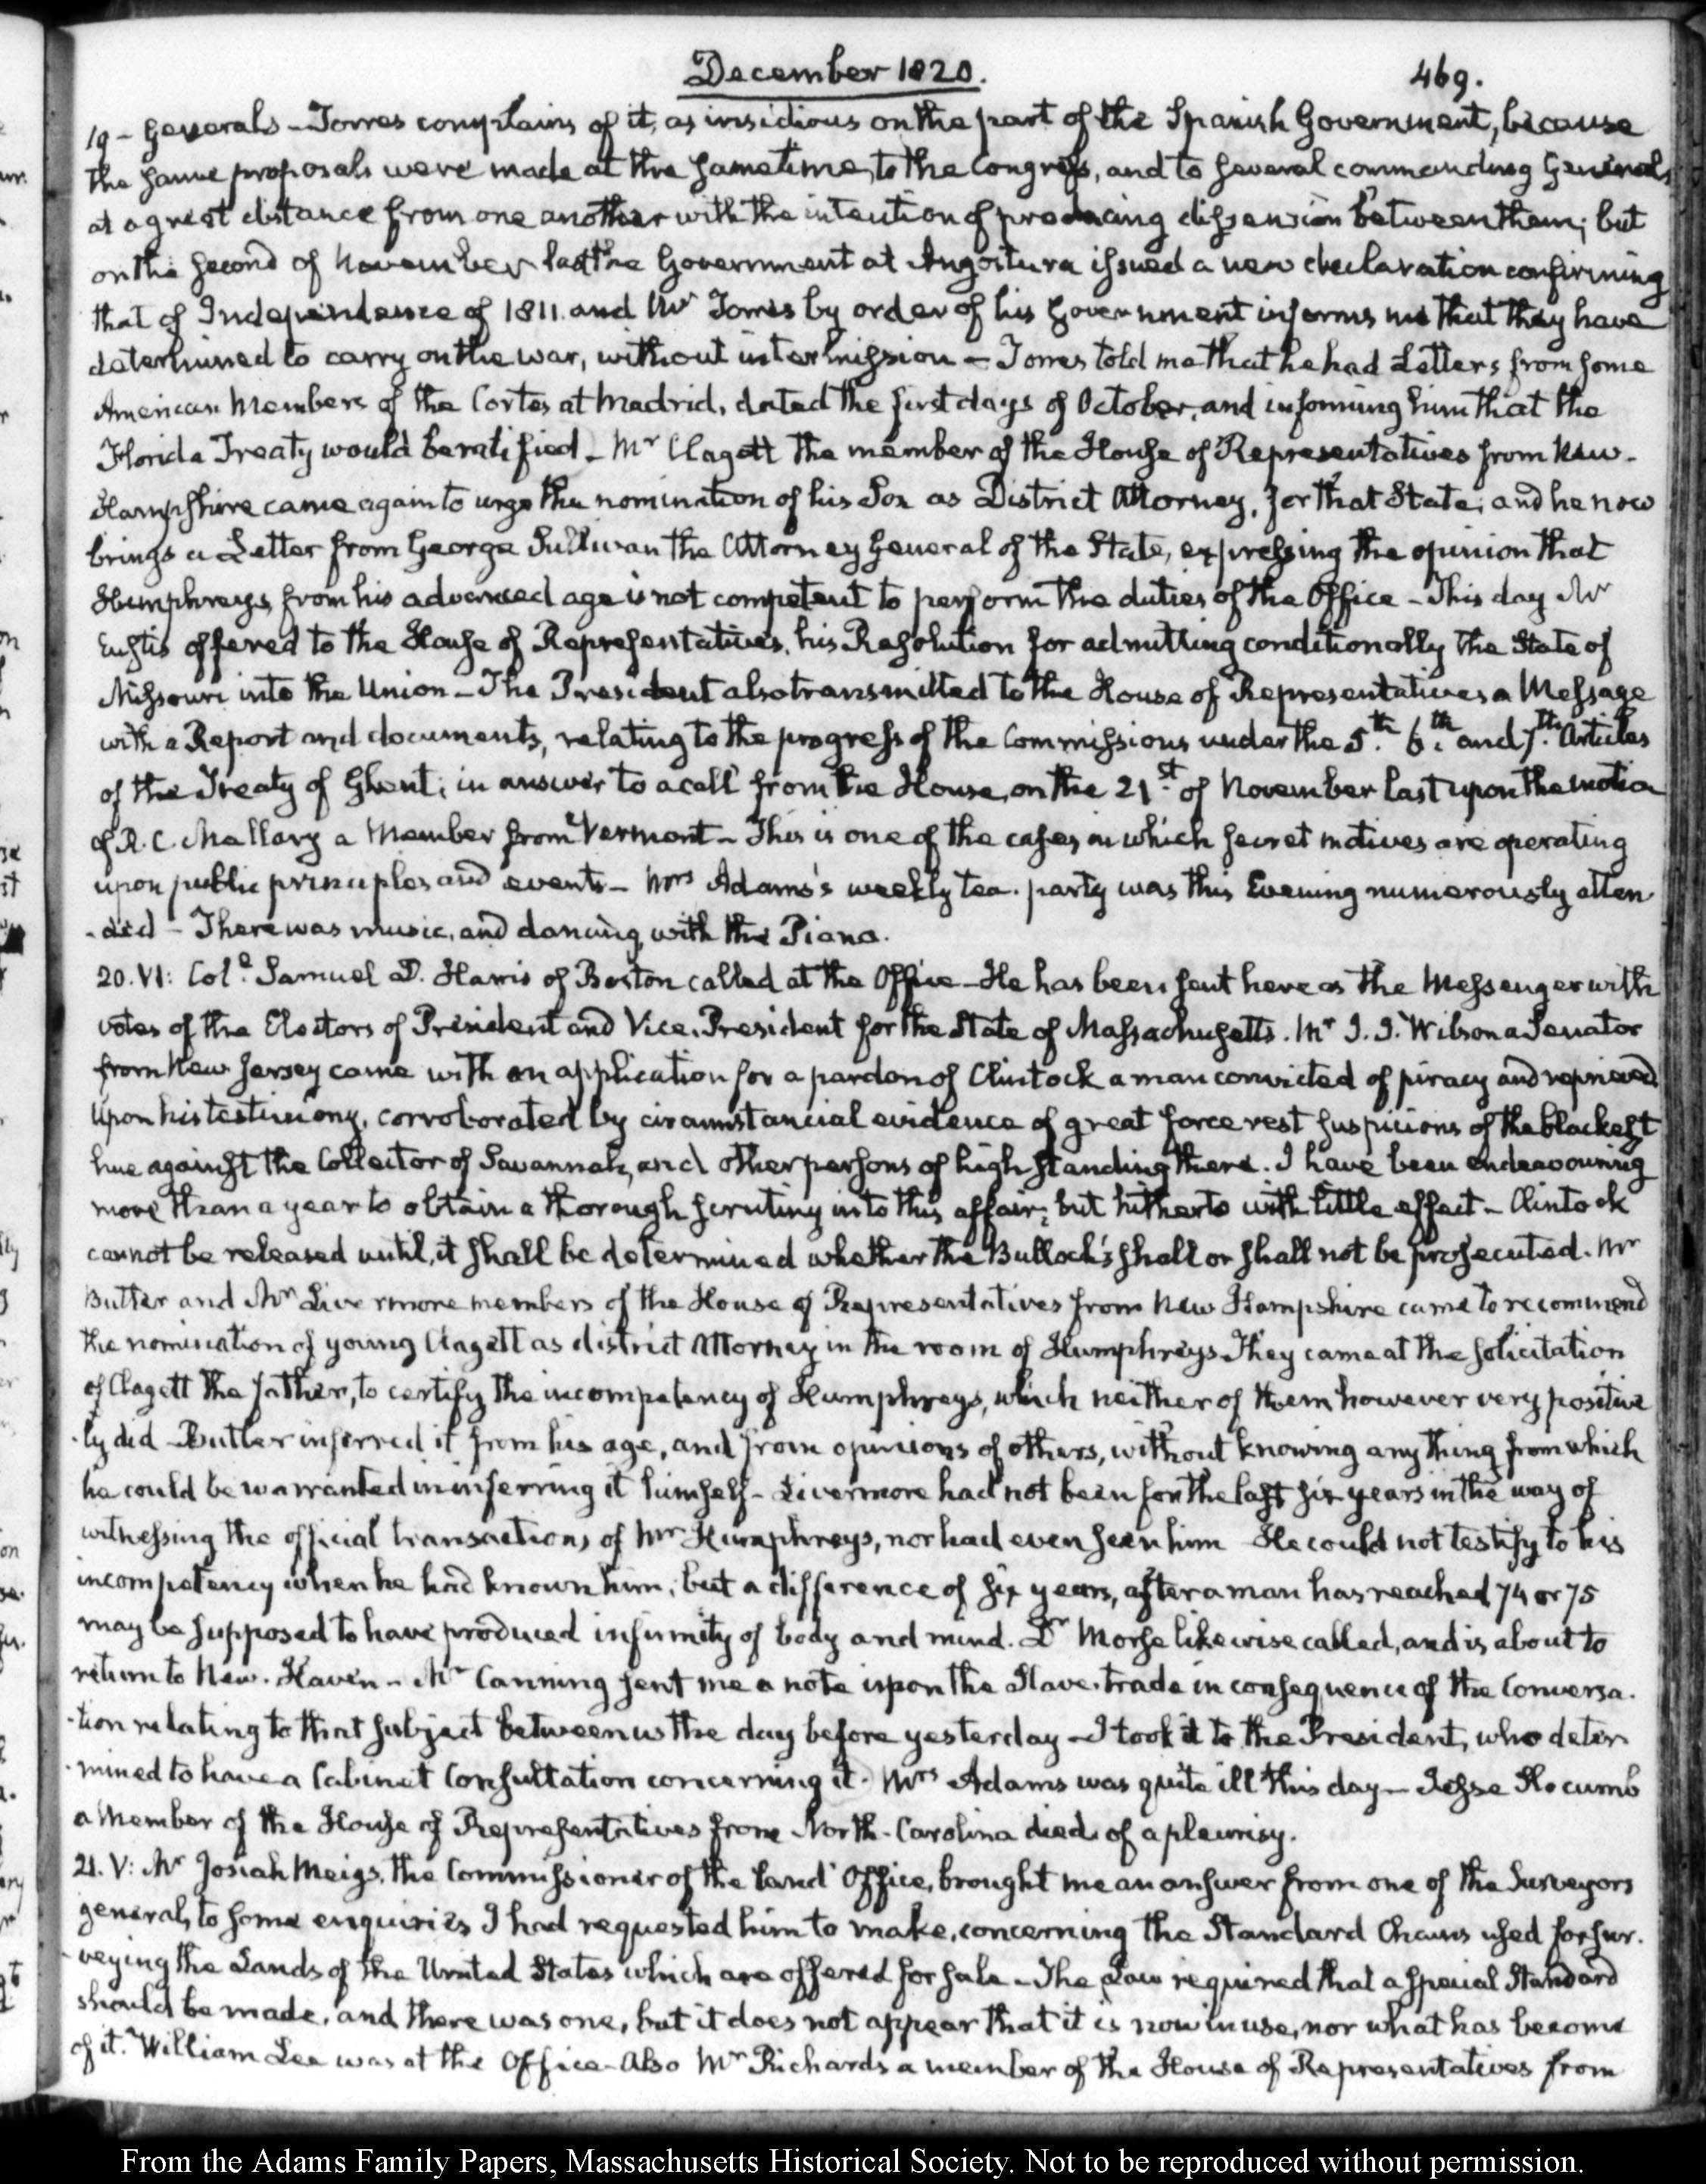 December 1820.
469.
19 - Generals - Torres complains of it, as insidious on the part of the Spanish Government, because
the same proposals were made at the same time, to the Congress, and to several commanding Generals,
at a great distance from one another with the intention of producing dissension between them; but
on the second of November last the Government at Angostura issued a new declaration confirming
that of Independence of 1811. and Mr Torres by order of his Government informs me that they have
determined to carry on the war, without intermission - Torres told me that he had Letters from some
American Members of the Cortes at Madrid, dated the first days of October, and informing him that the
Florida Treaty would be ratified - Mr Clagett the member of the House of Representatives from New-
Hampshire came again to urge the nomination of his Son as District Attorney, for that State; and he now
brings a Letter from George Sullivan the Attorney General of the State, expressing the opinion that
Humphreys, from his advanced age is not competent to perform the duties of the Office - This day Mr
Eustis offered to the House of Representatives, his Resolution for admitting conditionally the State of
Missouri into the Union - The President also transmitted to the House of Representatives a Message
with a Report and documents, relating to the progress of the Commissions under the 5th. 6th. and 7th. Articles
of the Treaty of Ghent; in answer to a call from the House, on the 21st of November last upon the motion
of R. C. Mallary a Member from Vermont - This is one of the cases in which secret motives are operating
upon public principles and events - Mrs Adams's weekly tea-party was this Evening numerously atten-
-ded - There was music, and dancing, with the Piano.
20. VI: Col.o Samuel D. Harris of Boston called at the Office - He has been sent here as the Messenger with
votes of the Electors of President and Vice-President for the State of Massachusetts. Mr J. J. Wilson a Senator
from New Jersey came with an application for a pardon of Clintock a man convicted of piracy and reprieved
Upon his testimony, corroborated by circumstancial evidence of great force rest suspicions of the blackest
hue against the Collector of Savannah, and other persons of high standing there. I have been endeavouring
more than a year to obtain a thorough scrutiny into this affair; but hitherto with little effect - Clintock
cannot be released until, it shall be determined whether the Bullock's shall or shall not be prosecuted. Mr
Butler and Mr Livermore members of the House of Representatives from New Hampshire came to recommend
the nomination of young Clagett as district Attorney in the room of Humphreys. They came at the solicitation
of Clagett the father, to certify the incompetency of Humphreys, which neither of them however very positive
-ly did - Butler inferred it from his age, and from opinions of others, without knowing any thing from which
he could be warranted in inferring it himself - Livermore had not been for the last six years in the way of
witnessing the official transactions of Mr Humphreys, nor had even seen him He could not testify to his
incompetency when he had known him; but a difference of six years, after a man has reached 74 or 75
may be supposed to have produced infirmity of body and mind. Dr Morse likewise called, and is about to
return to New-Haven - Mr Canning sent me a note upon the Slave-trade in consequence of the Conversa-
-tion relating to that subject between us the day before yesterday - I took it to the President, who deter
-mined to have a Cabinet Consultation concerning it. Mrs Adams was quite ill this day - Jesse Slocumb
a Member of the House of Representatives from North-Carolina died of a pleurisy.
21. V: Mr Josiah Meigs, the Commissioner of the Land Office, brought me an answer from one of the Surveyors
general, to some enquiries I had requested him to make, concerning the Standard Chains used for sur-
-veying the Lands of the United States which are offered for sale - The Law required that a special Standard
should be made, and there was one, but it does not appear that it is now in use, nor what has become
of it. William Lee was at the Office - Also Mr Richards a member of the House of Representatives from
From the Adams Family Papers, Massachusetts Historical Society. Not to be reproduced without permission.